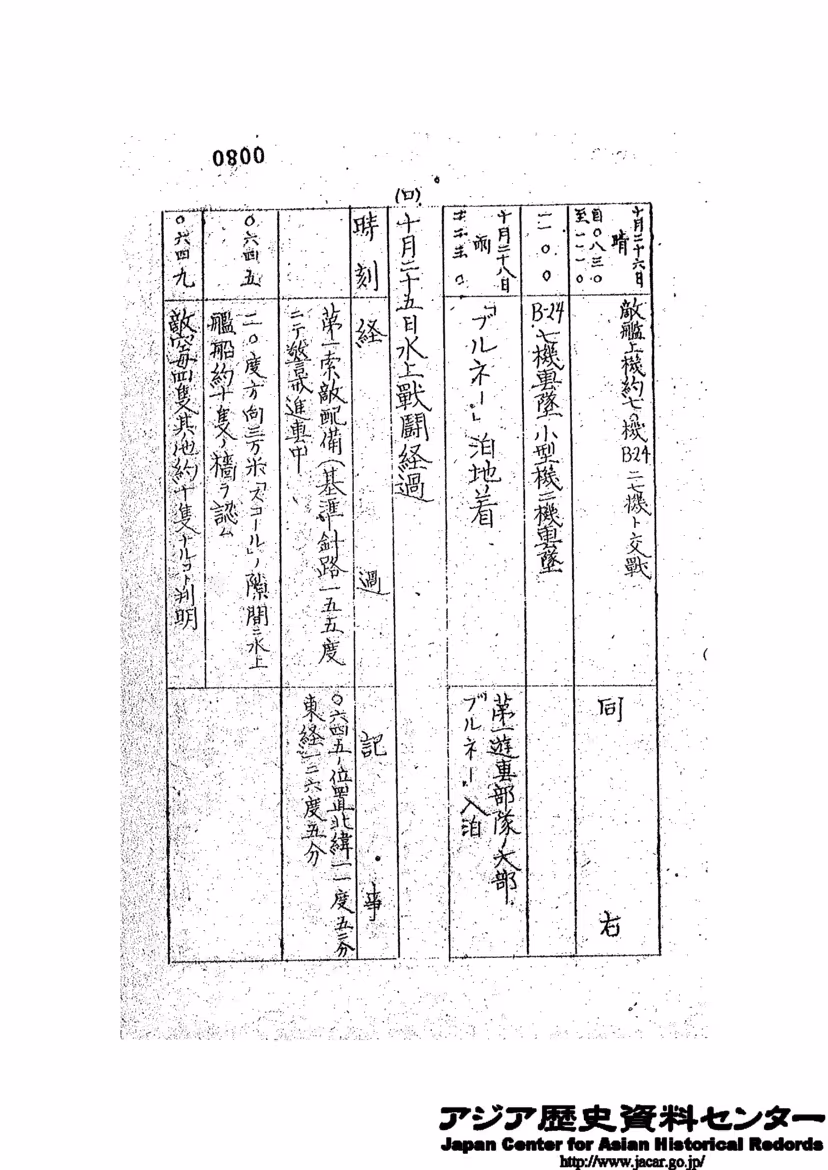 0800
十月二十六日
晴
自〇八三〇
至一一一〇
敵艦上機約七〇機B-24二七機ト交戰
同右
一一〇〇
B-24七機重墜小型機二機重墜
十月二十八日
雨
「ブルネー」泊地ノ着
第一遊車部隊ノ大部
「ブルネー」入泊
(ロ)十月二十五日水上戰闘経過
時刻
経過
記事
第一索敵配備(基準針路一五五度
ニテ警戒進車中
〇六四五ノ位置北緯一一度五三分
東経一二六度五分
〇六四五
二〇度方向三万米「スコール」ノ隙間ニ水上
艦船約十隻ノ檣ヲ認ム
〇六四九
敵空母四隻其他約十隻ナルコト判明
アジア歴史資料センター
Japan Center for Asian Historical Redords
http://www.jacar.go.jp/